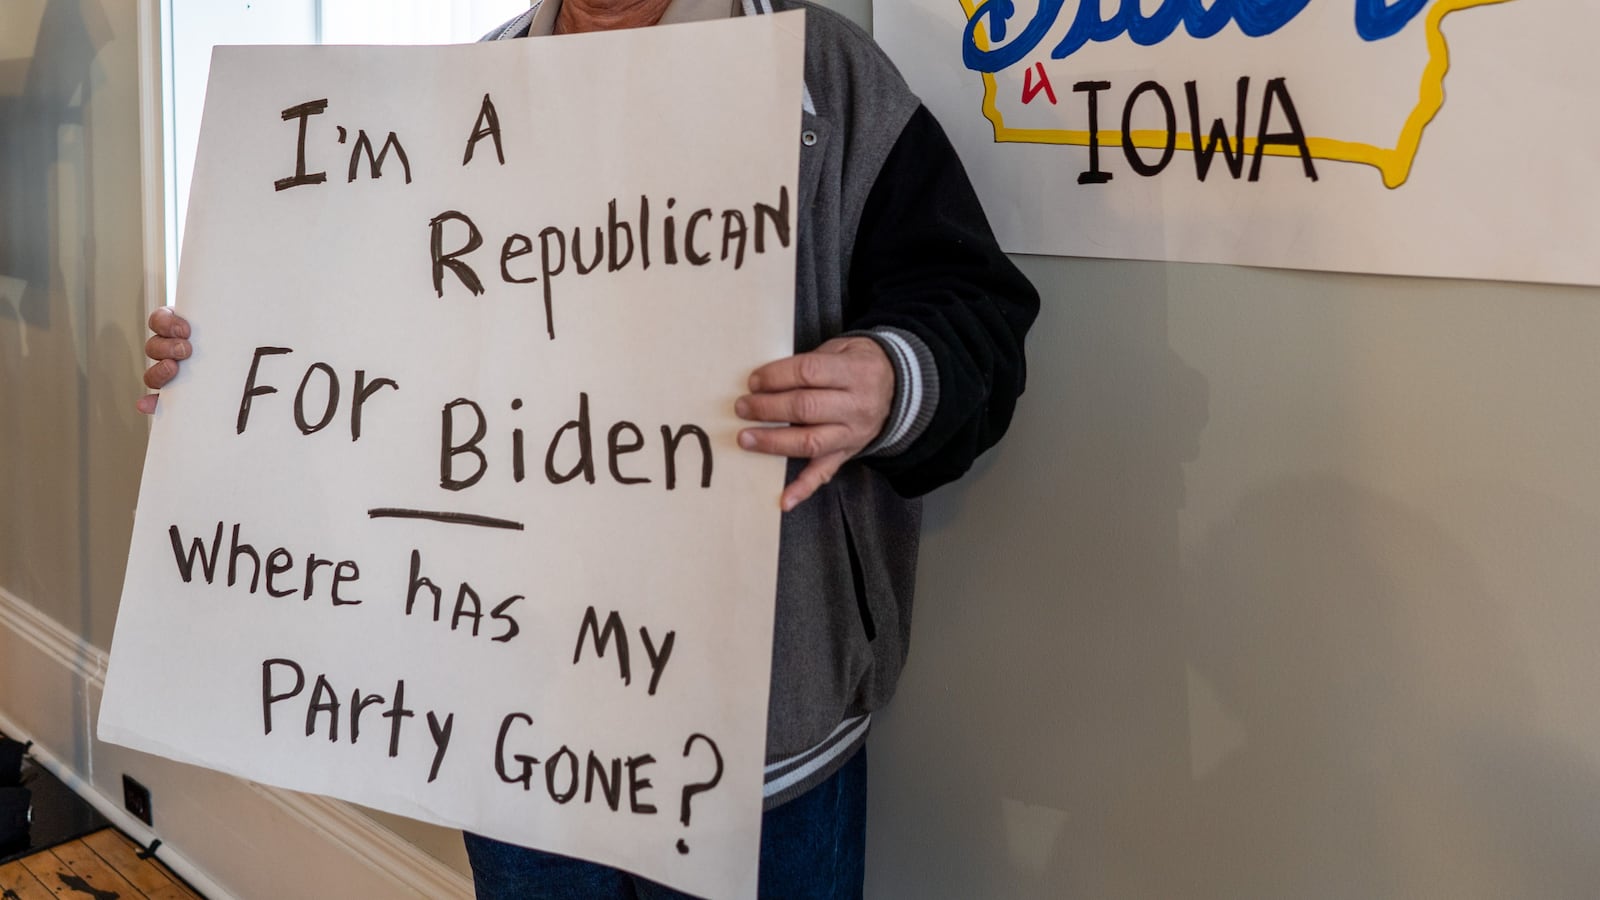 I'm A
Republican
For Biden
Where has My
Party Gone?
4
IOWA